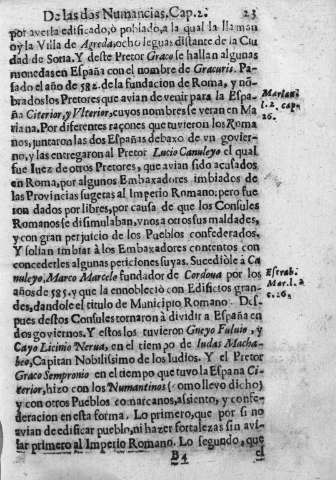 De las dos Numancias, Cap. 2. 23
por averla edificado, ò poblado, a la qual la llaman
oy la Villa de Agreda, ocho leguas distante de la Ciu
dad de Soria. Y deste Pretor Graco se hallan algunas
monedas en España con el nombre de Gracuris. Pa-
sado el año de 582. de la fundacion de Roma, y nõ-
brados los Pretores que avian de venir para la Espa-
ña Citerior, y Vlterior, cuyos nombres se veran en Ma
riana. Por diferentes raçones que tuvieron los Roma
nos, juntaron las dos Españas debaxo de vn govier-
no, y las entregaron al Pretor Lucio Canuleyo el qual
fue Iuez de otros Pretores, que avian sido acusados
en Roma, por algunos Embaxadores imbiados de
las Provincias sugetas al Imperio Romano: pero fue
ron dados por libres, por causa de que los Consules
Romanos se disimulaban, vnos a otros sus maldades,
y con gran perjuicio de los Pueblos confederados.
Y solian imbiar à los Embaxadores contentos con
concederles algunas peticiones suyas. Sucediòle à Ca
nuleyo, Marco Marcelo fundador de Cordoua por los
años de 585. y que la ennobleciò con Edificios gran-
des, dandole el titulo de Municipio Romano. Des-
pues destos Consules tornaron à dividir a España en
dos goviernos. Y estos los tuvieron Gneyo Fuluio, y
Cayo Licinio Nerua, en el tiempo de Iudas Macha-
beo, Capitan Nobilisimo de los Iudios. Y el Pretor
Graco Sempronio en el tiempo que tuvo la España Ci-
terior, hizo con los Numantinos (como llevo dicho)
y con otros Pueblos comarcanos, asiento, y confe-
deracion en esta forma. Lo primero, que por si no
avian de edificar pueblo, ni hazer fortalezas sin avi-
sar primero al Imperio Romano. Lo segundo, que
B4 el
l. 2. cap.
26.
Estrab.
Mor. l.
c. 26.